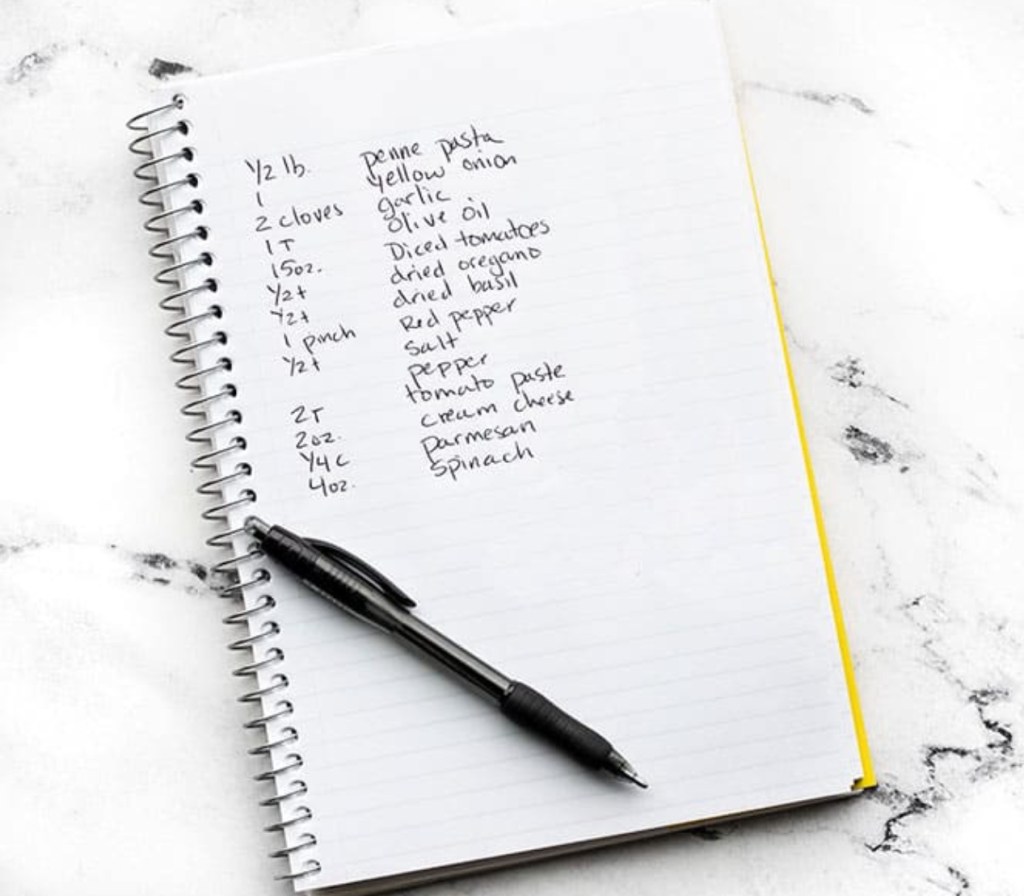 1/2 lb. penne pasta
1 yellow onion
2 cloves garlic
1 T olive oil
15oz. Diced tomatoes
1/2 t dried oregano
1/2 t dried basil
1 pinch Red pepper
1/2 t salt
pepper
2T tomato paste
2oz. cream cheese
1/4 c parmesan
4oz. spinach